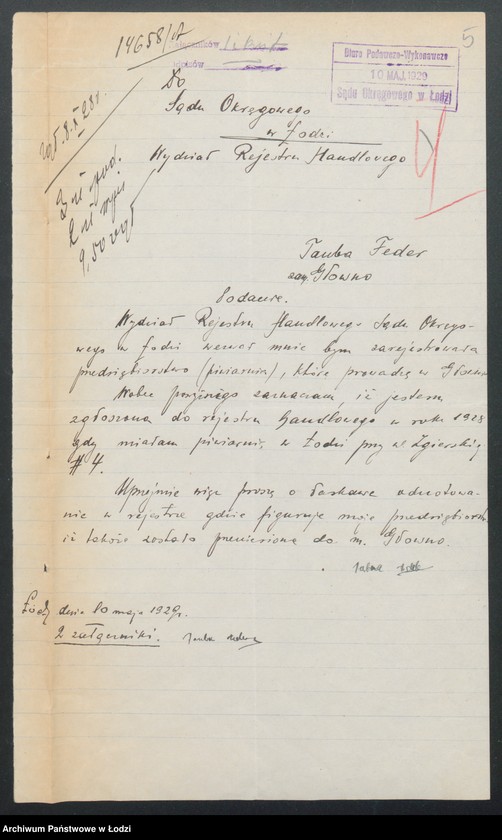 5
14658/A
załączników
Biuro Podawczo-Wykonawcze
10 MAJ. 1929
Sądu Okręgowego w Łodzi
Do
Sądu Okręgowego
w Łodzi
Wydział Rejestru Handlowego
8.X.28 r.
3 zł pod.
2 zł
9,50
Tauba Feder
zam. Głowno
Podanie.
Wydział Rejestru Handlowego Sądu Okręgo-
wego w Łodzi wezwał mnie bym zarejestrowała
przedsiębiorstwo (piwiarnia), które prowadzę w Głownie
Wobec powyższego zaznaczam, iż jestem
zgłoszona do rejestru handlowego w roku 1928
gdy miałam piwiarnię w Łodzi przy ul Zgierskiej
# 4.
Uprzejmie więc proszę o łaskawe adnotowa-
nie w rejestrze gdzie figuruje moje przedsiębiorstwo
iż takoż zostało przeniesione do m. Głowno.
Tauba
Łódź dnia 10 maja 1929 r.
2 załączniki. Tauba
Archiwum Państwowe w Łodzi